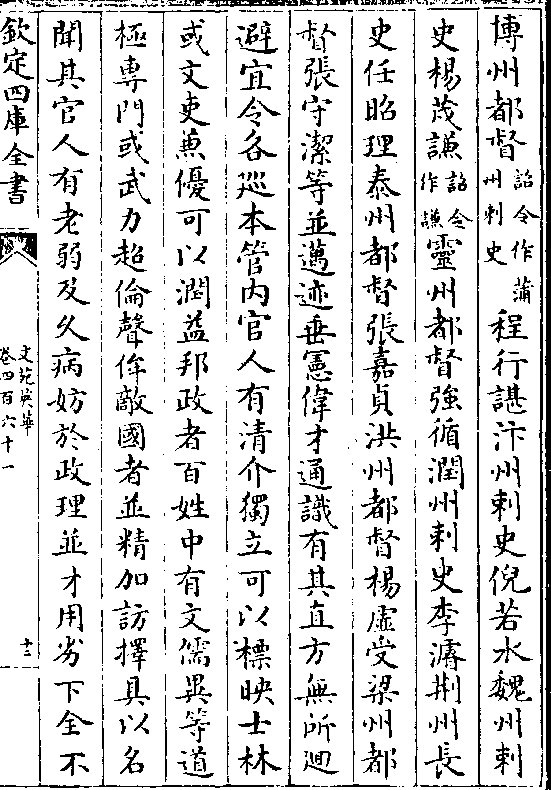 博州都督詔令作蒲州刺史程行諶汴州刺史倪若水魏州刺
史楊茂謙詔令作謙靈州都督強循潤州刺史李濬荆州長
史任昭理泰州都督張嘉貞洪州都督楊虛受梁州都
督張守潔等並邁迹垂憲偉才通識有其直方無所迴
避宜令各巡本管内官人有清介獨立可以標映士林
或文吏兼優可以潤益邦政者百姓中有文儒異等道
極専門或武力超倫聲侔敵國者並精加訪擇具以名
聞其官人有老弱及久病妨於政理並才用劣下全不
欽定四庫全書
文苑英華
卷四百六十一
十二